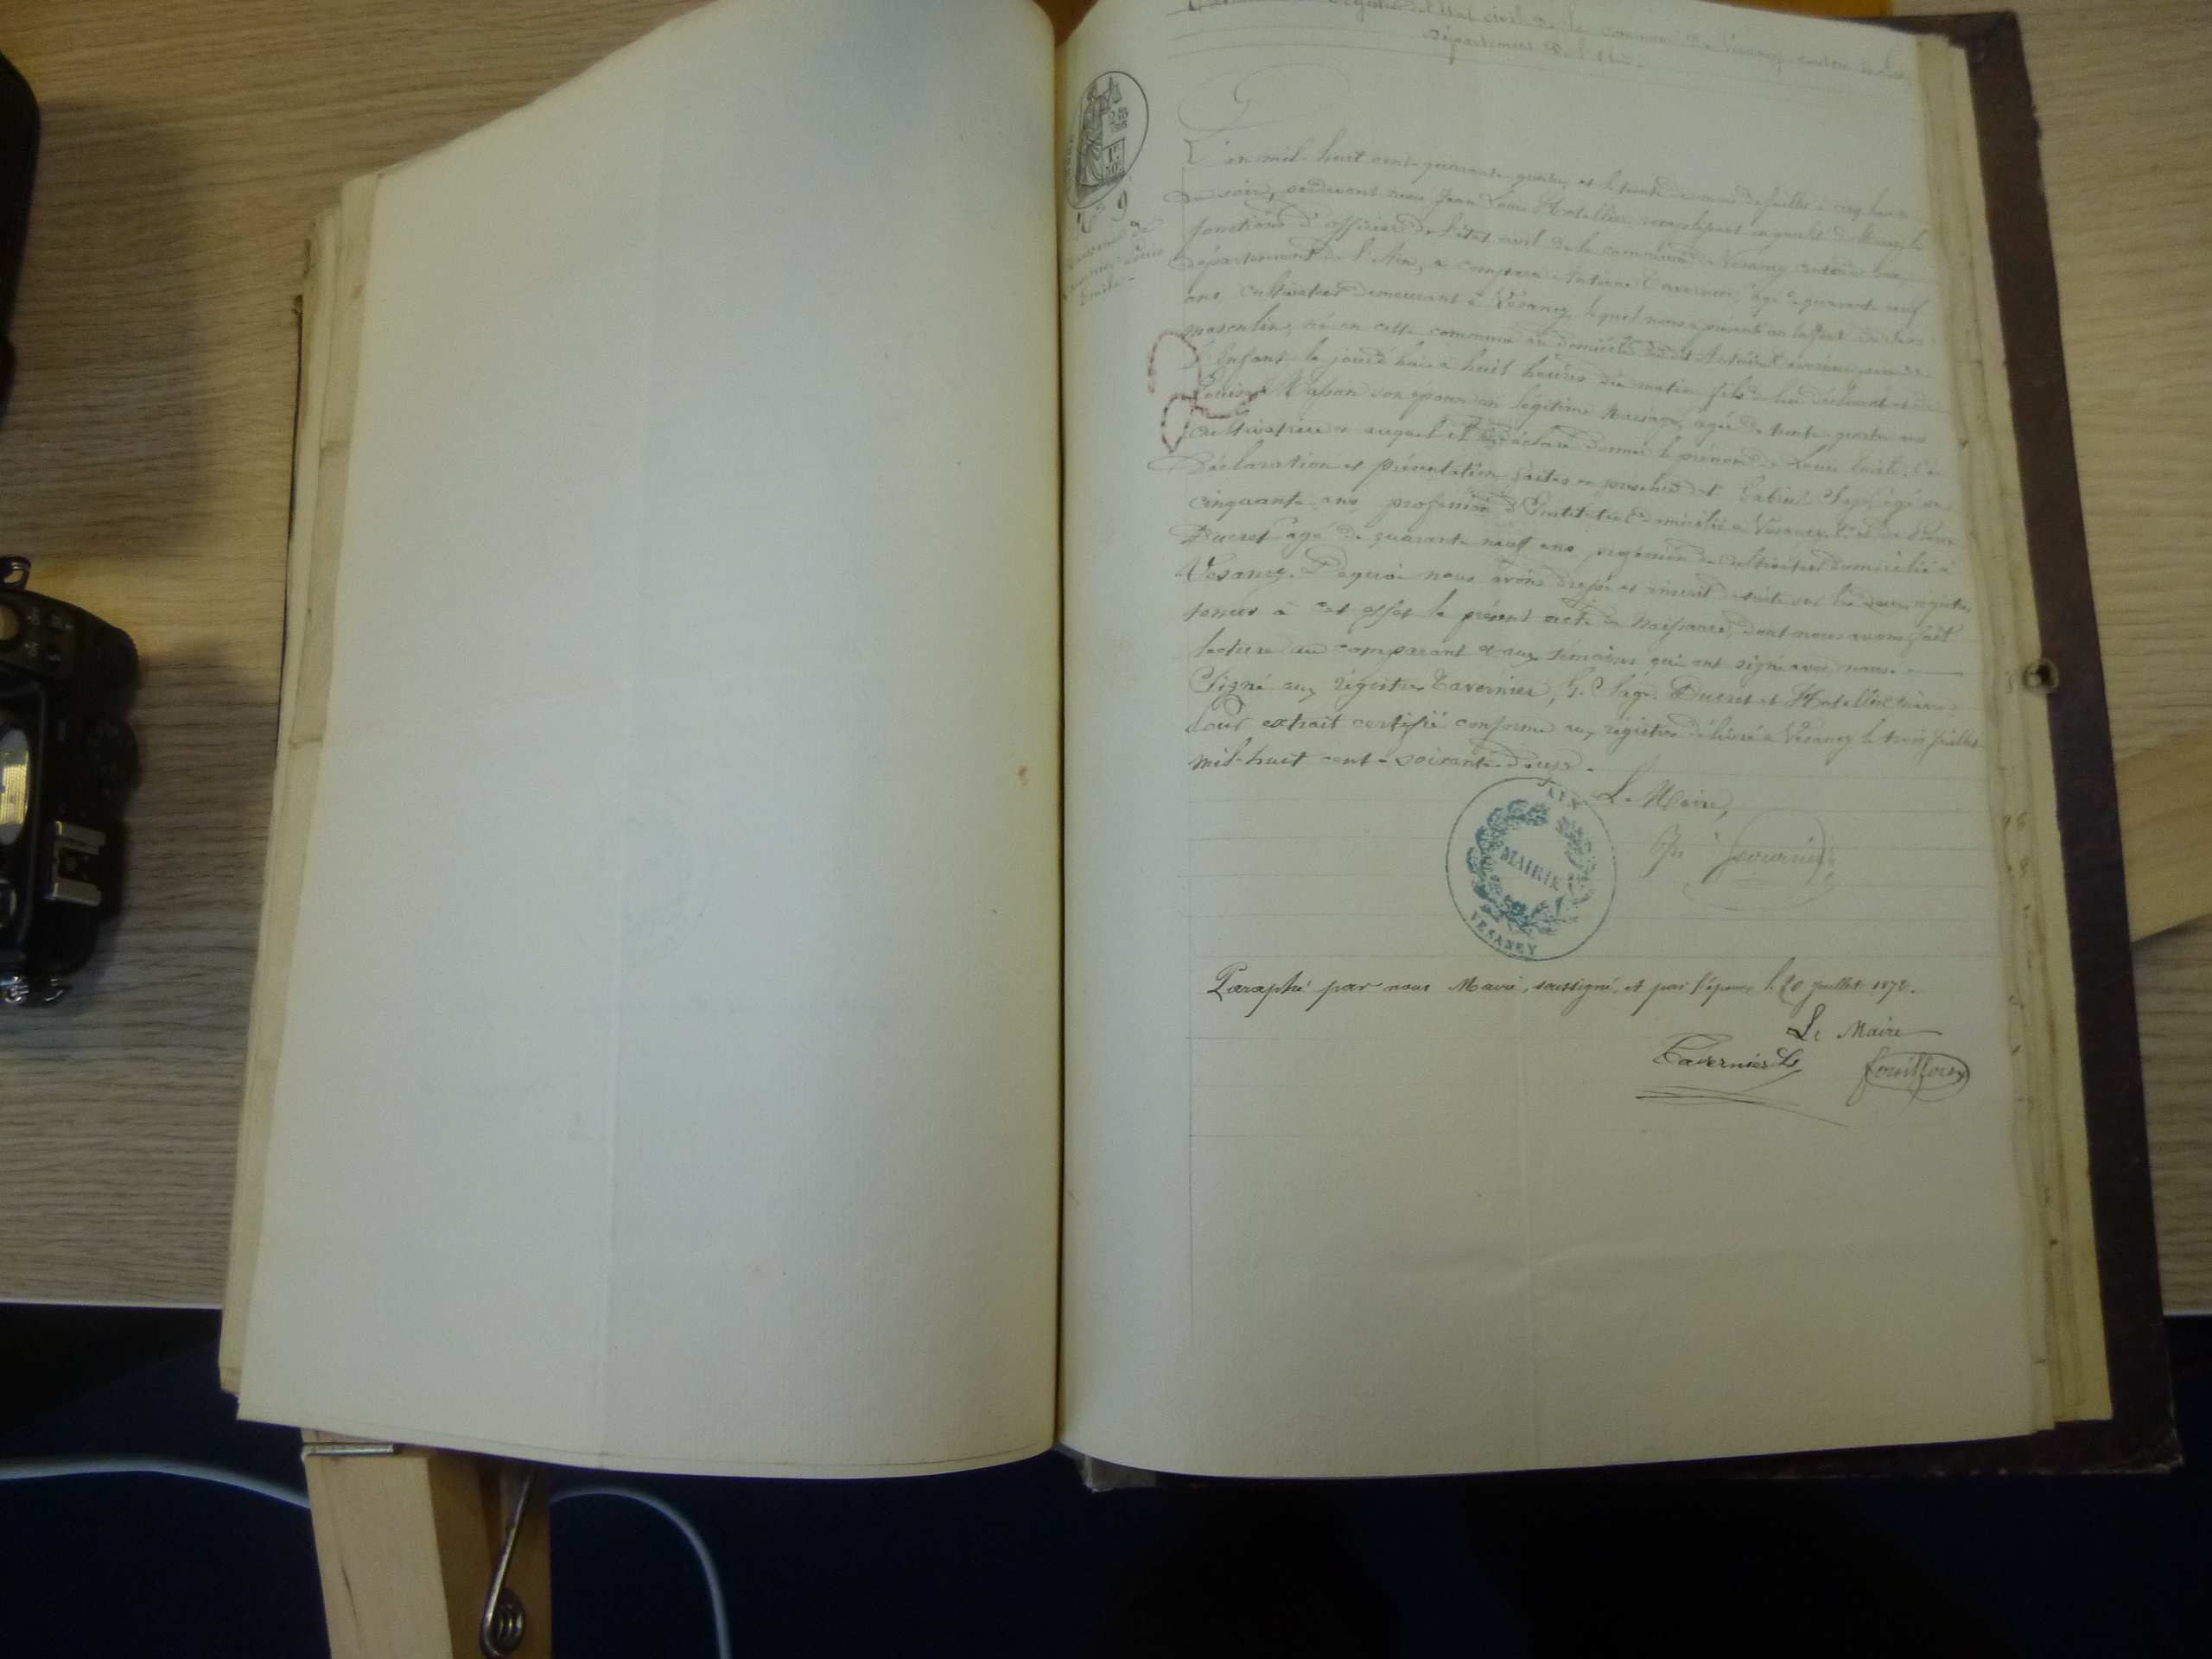 registre de l'état civil de la commune de Vesancy canton de Gex
Département de l'Ain.
1F
N° 9
Naissance de
Tavernier Louis
Emile
L'an mil huit cent quarante quatre et le trente du mois de juillet à cinq heures
du soir, pardevant nous Jean Louis Hotellier, remplissant en qualité de Maire les
fonctions d'officier de l'état civil de la commune de Vesancy canton de Gex,
département de l'Ain, a comparu Antoine Tavernier, âgé de quarante neuf
ans, cultivateur demeurant à Vesancy lequel nous a présenté un enfant du sexe
masculin, né en cette commune au domicile du dit Antoine Tavernier, père de
l'enfant le jour d'hui à huit heures du matin fils de lui déclarant et de
Louise Masson son épouse en légitime mariage, agée de trente quatre ans
cultivatrice et auquel il a déclaré donner le prénom de Louis Emile. Ces
Déclaration et présentation faites en présence de 1° Gabriel Sage, âgé de
cinquante ans profession d'Instituteur domicilié à Vesancy, 2° et de
Ducret agé de quarante neuf ans profession de cultivateur domicilié à
Vesancy. Dequoi nous avons dressé et inscrit de suite sur les deux registres
tenus à cet effet le présent acte de naissance, dont nous avons fait
lecture au comparant et aux témoins qui ont signé avec nous.
Signé aux régistres Tavernier, G. Sage. Ducret et Hotellier maire
Pour extrait certifié conforme aux régistres délivré à Vesancy le trois juillet
mil-huit cent-soixante-douze.
Le Maire,
Fournier
AIN
MAIRIE
VESANEY
Paraphé par nous Maire, soussigné, et par l'époux le 20 juillet 1872.
Le Maire
Tavernier Ls